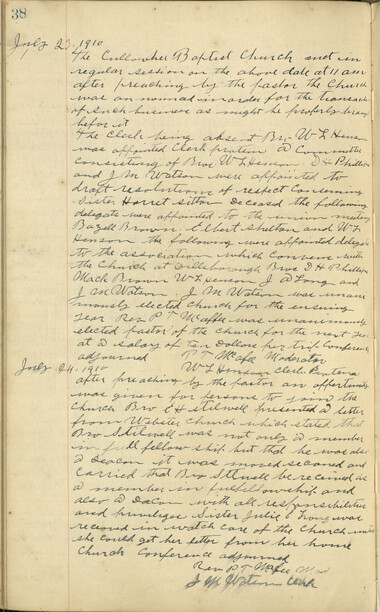 38
July 23, 1910
The Cullowhee Baptist Church met in
regular session on the above date at 11 a.m.
after preaching by the pastor the Church
was announced in order for the transaction
of such business as might be properly brought
before it
The Clerk being absent Bro W L Henson
was appointed Clerk protem a Committee
consisting of Bros W L Henson D H Phillips
and J M Watson were appointed to
draft resolutions of respect Concerning
Sister Harriet Sitton Deceased the following
delegate were appointed to the union meeting
Bazell Brown Elbert Shelton and W L
Henson the following were appointed delegates
to the association which convens with
the Church at Dillsborough Bros D H Phillips
Mack Brown W L Henson J A Long and
J M Watson J M Watson was unani
mously elected Church for the ensuing
year Rev P T McAffee was unanimously
elected pastor of the Church for the next year
at a salary of ten Dollars per trip Conference
adjourned P T McAfee Moderator
W L Henson Clerk Protem
July 24, 1910
after preaching by the pastor an oppertunity
was given for persons to join the
Church Bro C H Stilwell presented a letter
from Webster Church which stated that
Bro Stilwell was not only a member
in full fellowship but that he was also
a Deacon it was moved seconed and
Carried that Bro Stilwell be received as
a member in full fellowship and
also a Deacon with all responsibilities
and privileges Sister Julie Long was
received in watch care of the Church until
she could get her letter from her home
Church Conference adjourned
Rev P T McAfee Mod
J M Watson Clerk